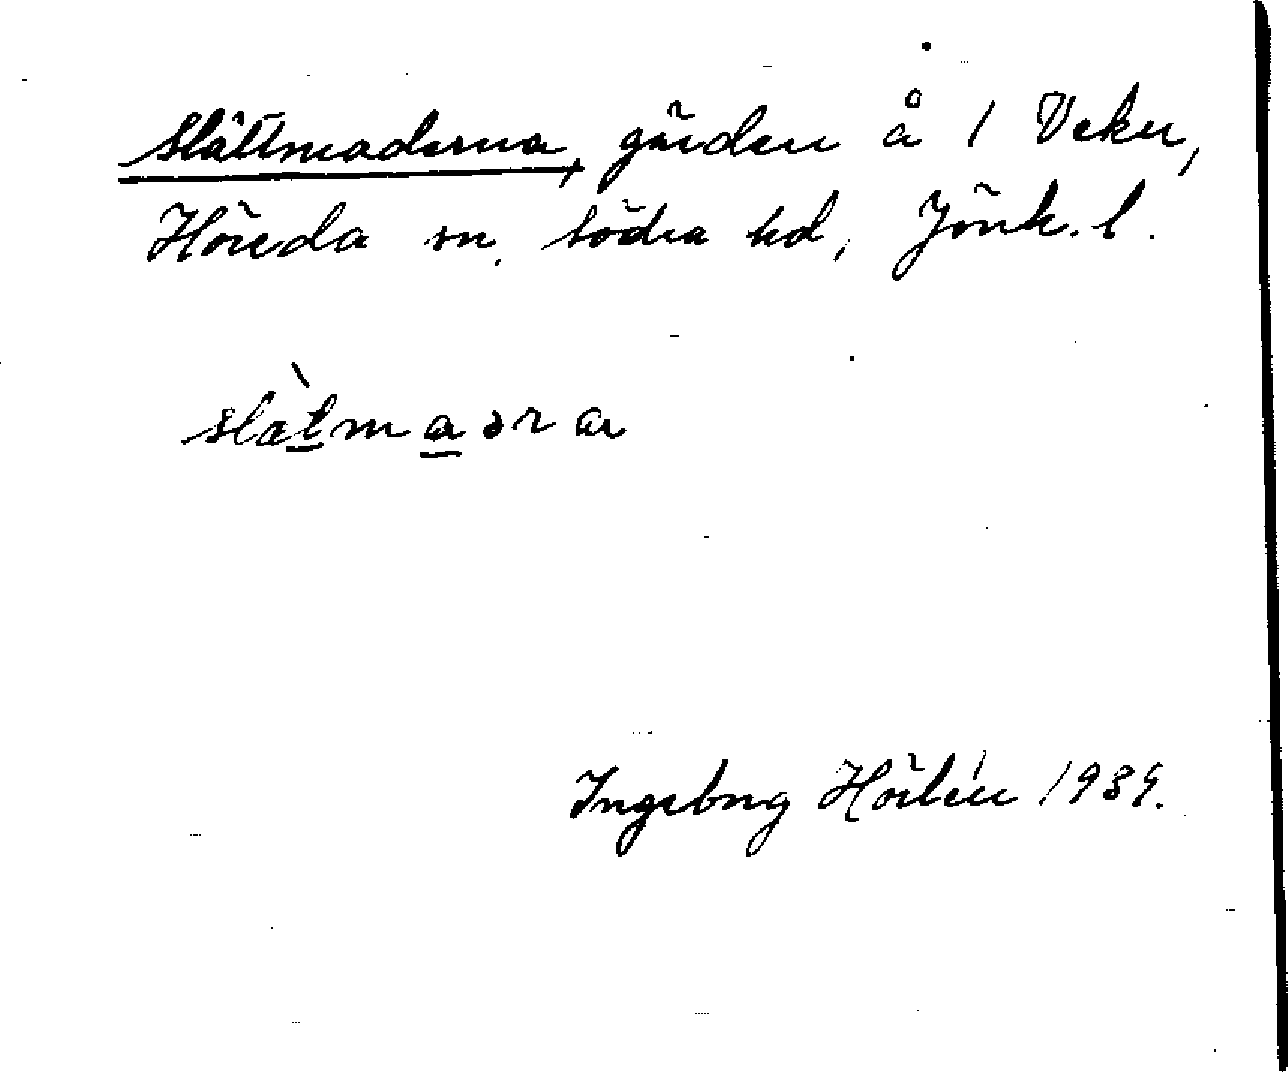 Slättmaderna, gärden å 1 Veku,
Höreda sn. Södra hd, Jönk. l.
slàtmaəra
Ingeborg Hörlén 1939.